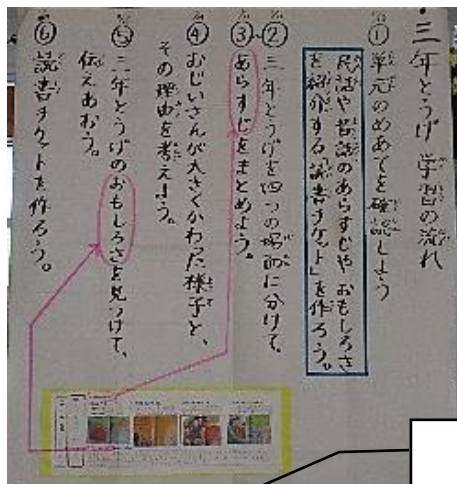 三年とうげ 学習の流れ
① 単元のめあてを確認しよう
民話や昔話のあらすじやおもしろさ
を紹介する「読書チケット」を作ろう。
② 三年とうげを四つの場面に分けて、
③ あらすじをまとめよう。
④ おじいさんが大きくかわった様子と、
その理由を考えよう。
⑤ 三年とうげのおもしろさを見つけて、
伝えあおう。
⑥ 読書チケットを作ろう。